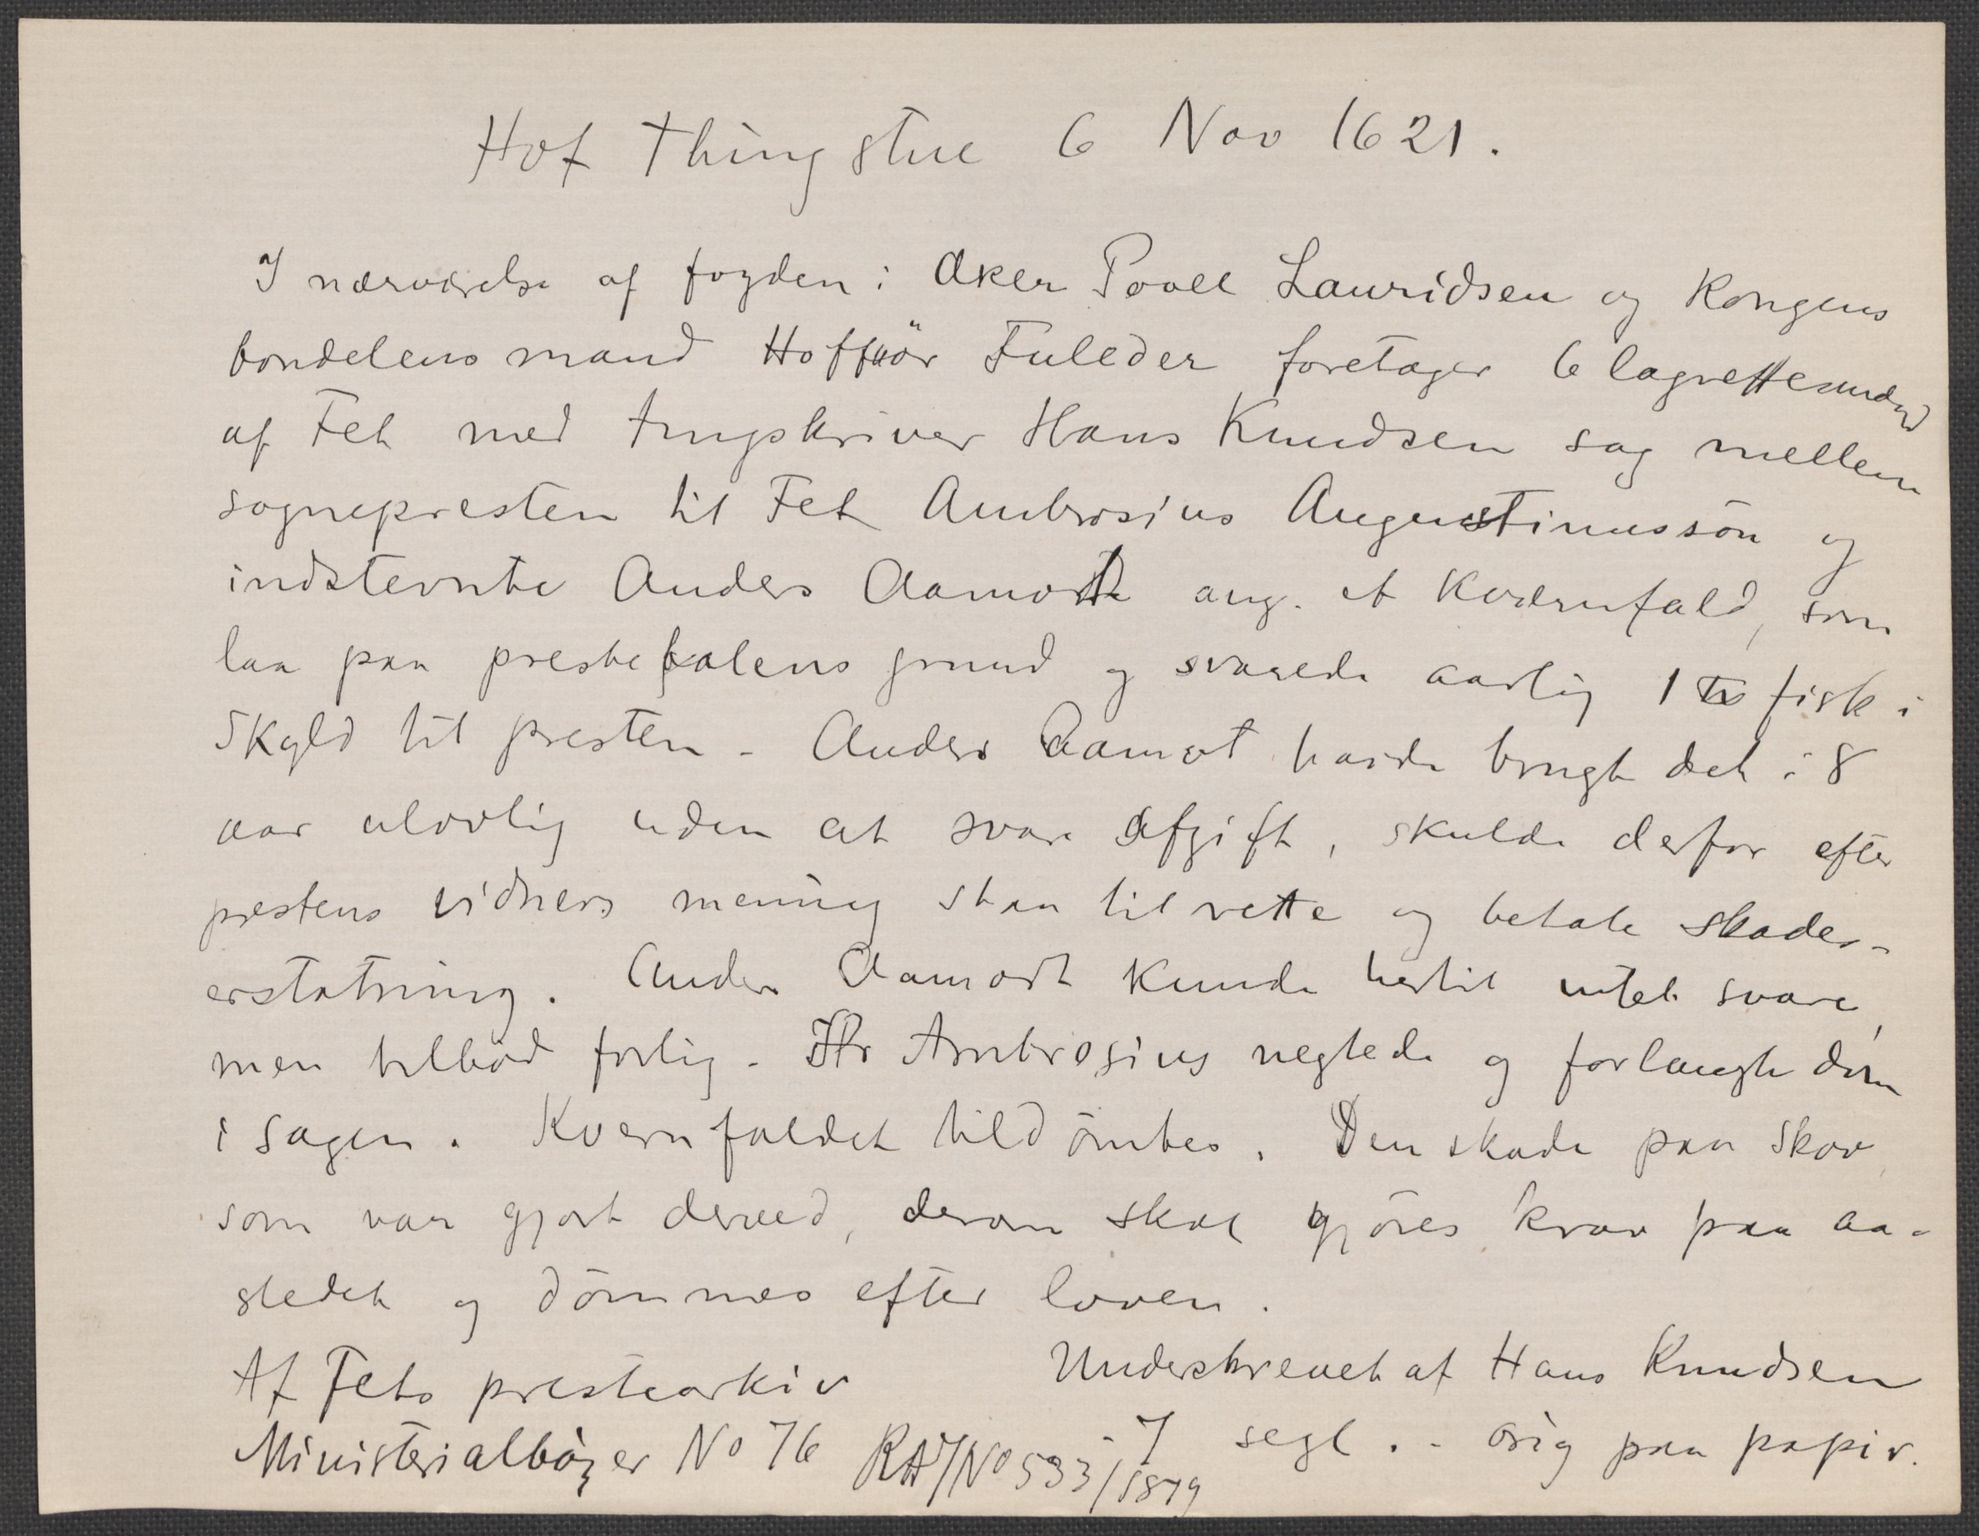 Hof Thingstue 6 Nov 1621.
I nærværelse af fogden i Aker Povel Lauridsen og Kongens
bondelensmand Hoffvör Fuleder foretager 6 lagrettesmænd
af Fet med tingskriver Hans Knudsen sag mellem
sognepresten til Fet Ambrosius Augustinussön og
indstevnte Anders Aamodt ang. et Kværnfald, som
laa paa prestebolens grund og svarede aarlig 1 fisk i
Skyld til presten - Anders Aamot havde brugt det i 8
aar ulovlig uden at svare Afgift, skulde derfor efter
prestens vidners mening staa til rette og betale skades-
erstatning. Anders Aamodt kunde hertil intet svare,
men tilböd forlig - Hr Ambrosius negtede og forlangte dom
i sagen. Kvernfaldet tildömtes. Den skade paa Skov
som var gjort derved, derom skal gjöres krav paa aa-
stedet og dömmes efter loven.
Af Fets prestearkiv Underskrevet af Hans Knudsen
Ministerialböger No 76 RA J No 533/1879 - 7 segl. - orig paa papir.